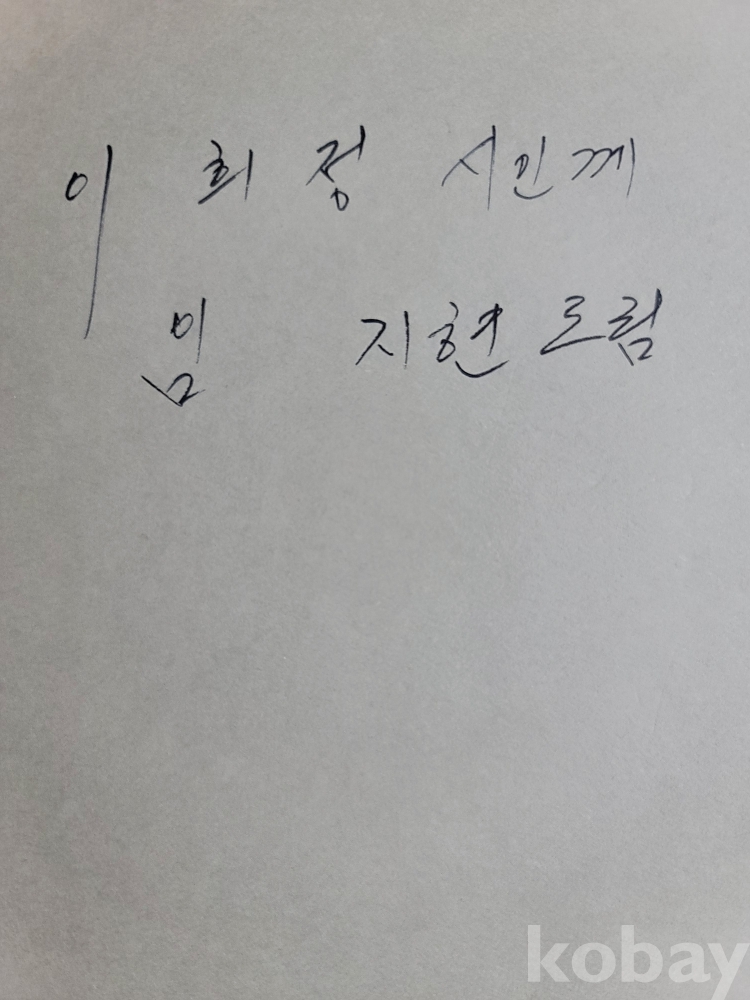 이 희 정 시인께
임 지현 드림
kobay